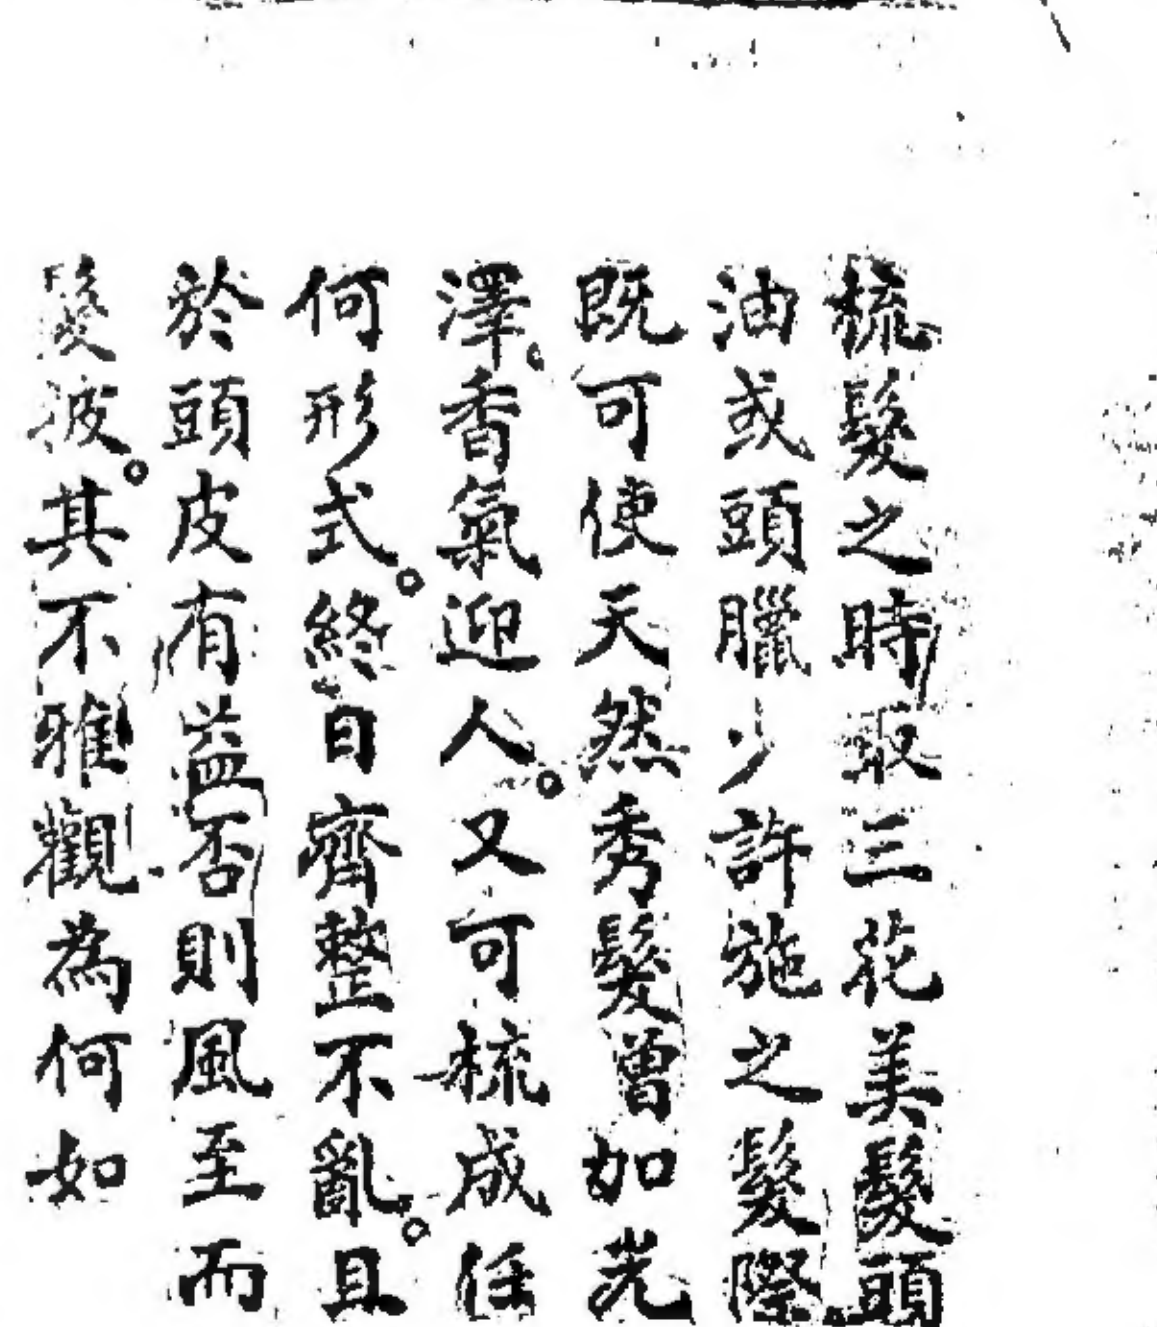 梳髮之時取三花美髮頭
油或頭臘少許施之髮際
既可使天然秀髮曾加光
澤。香氣迎人。又可梳成任
何形式。終日齊整不亂。且
於頭皮有益否則風至而
髮披。其不雅觀為何如